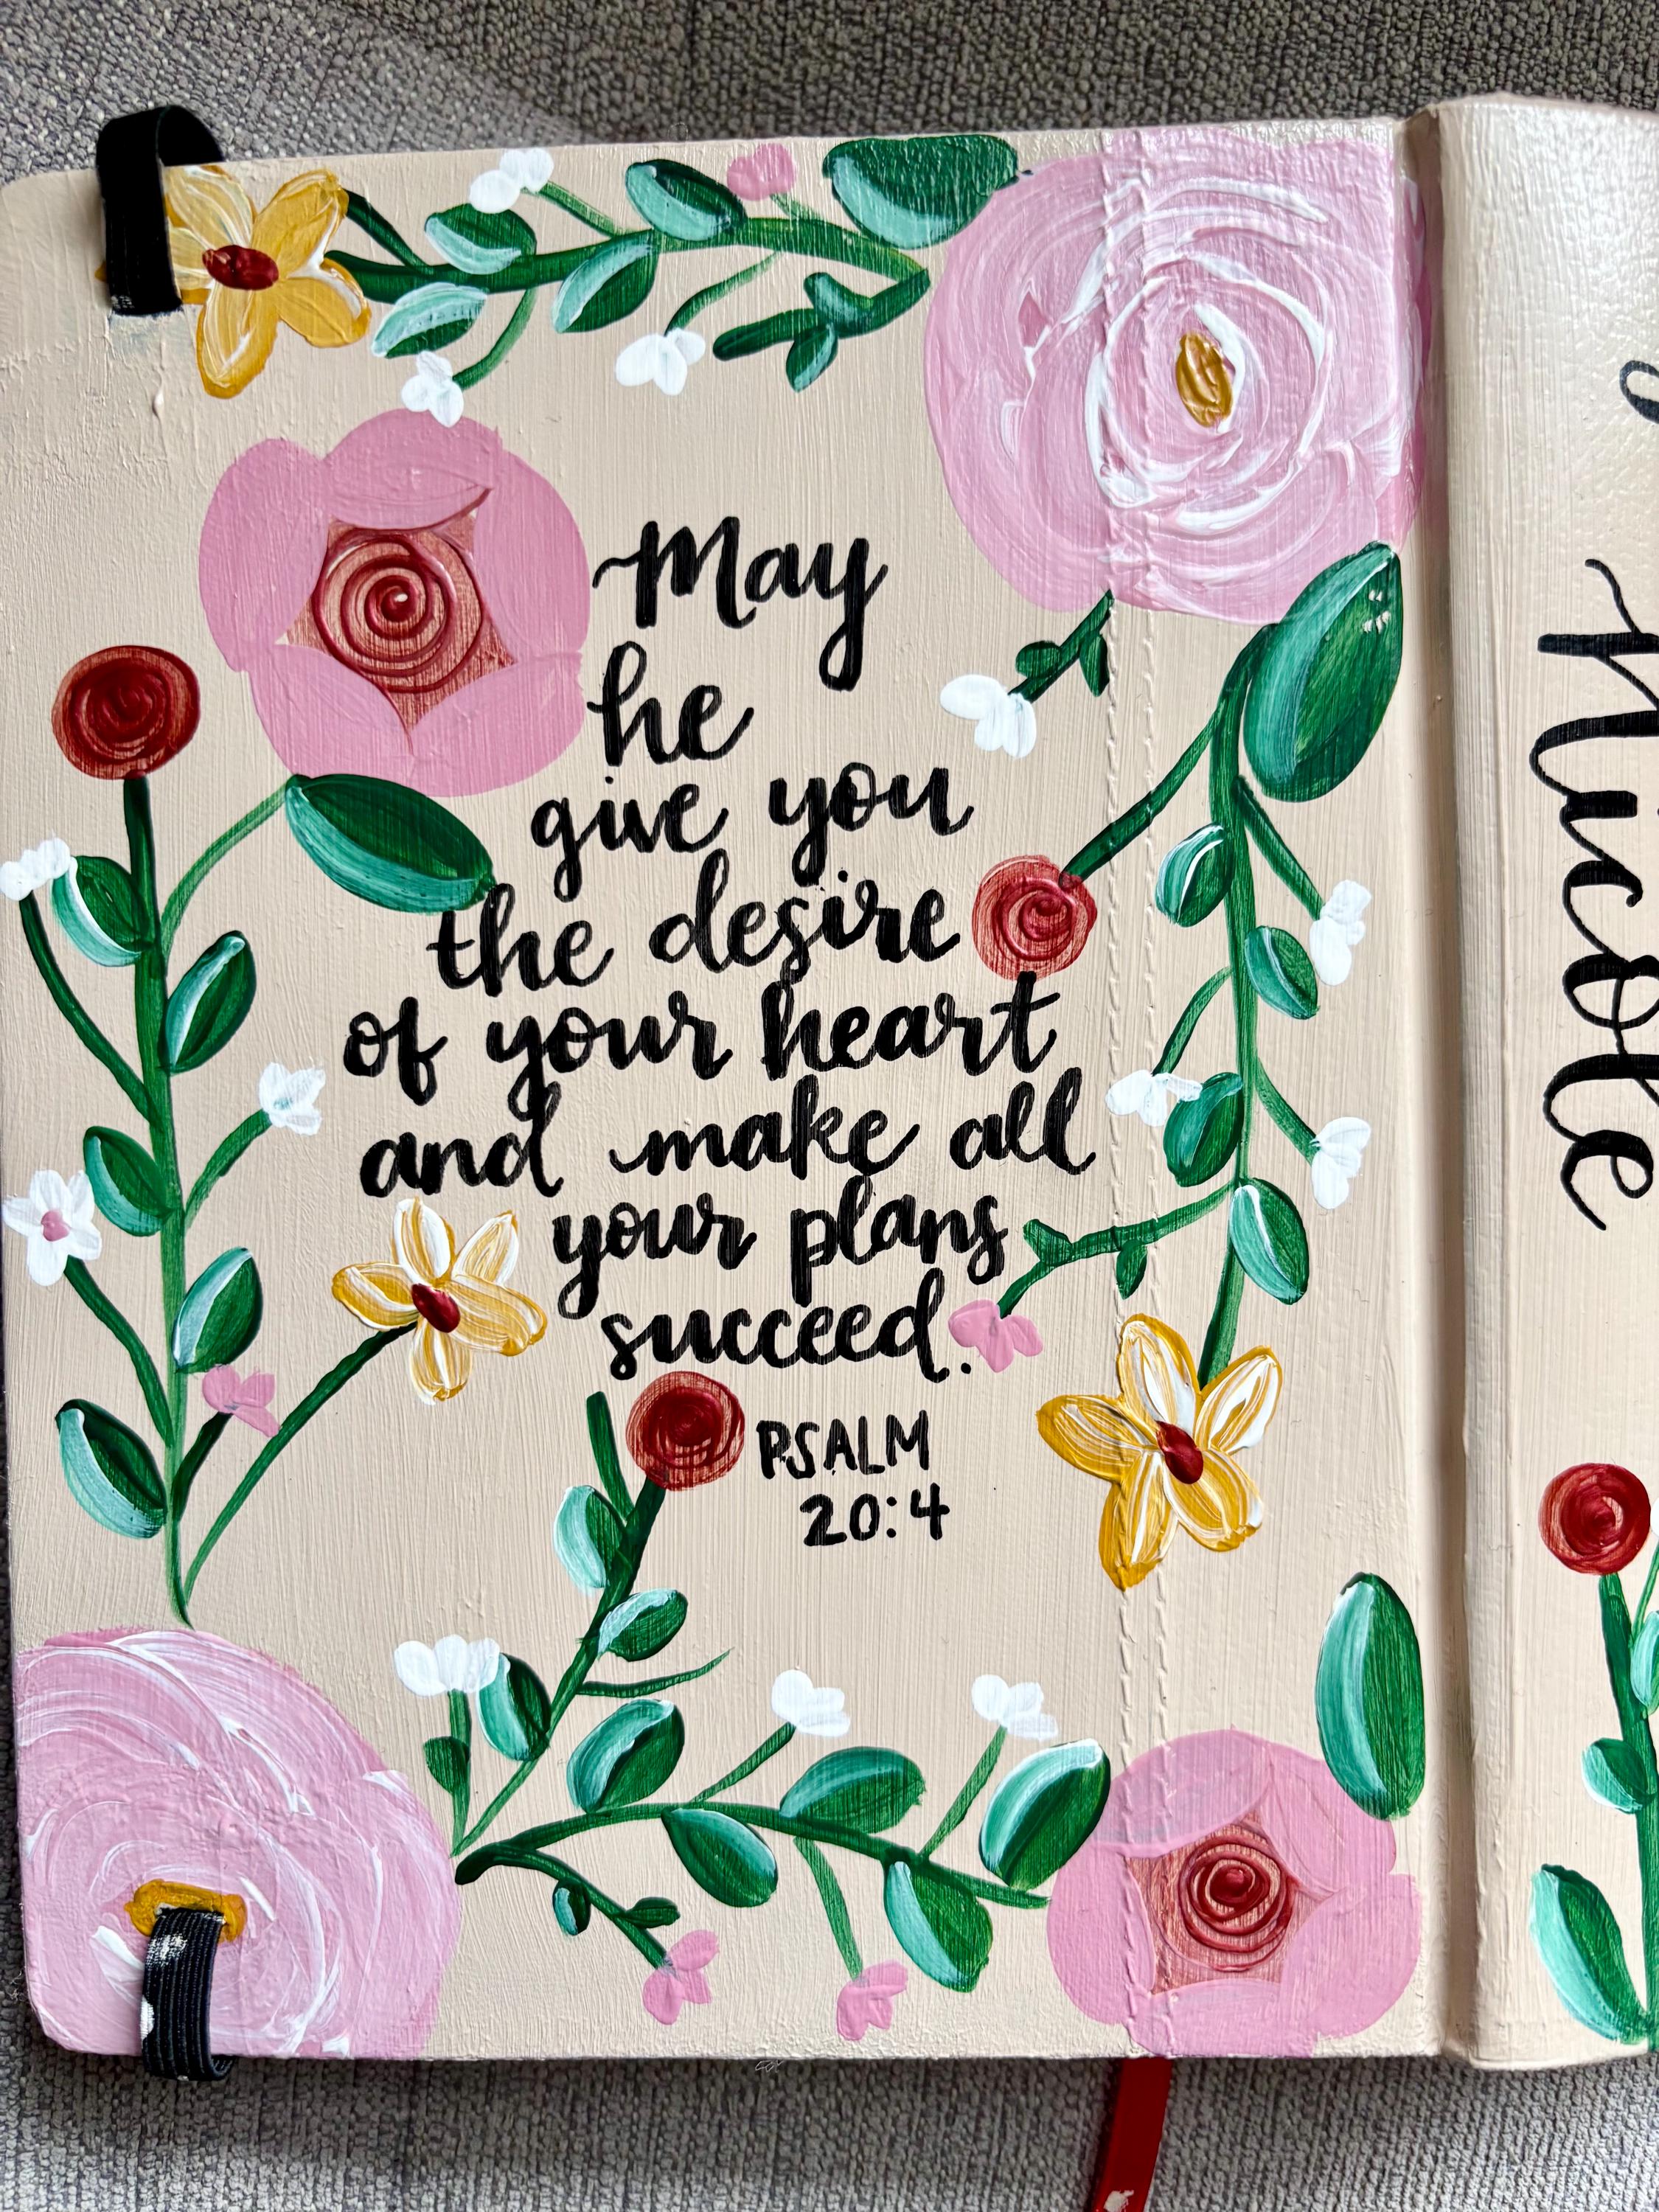 May
he
give you
the desire
of your heart
and make all
your plans
succeed.
PSALM
20:4
Nicole